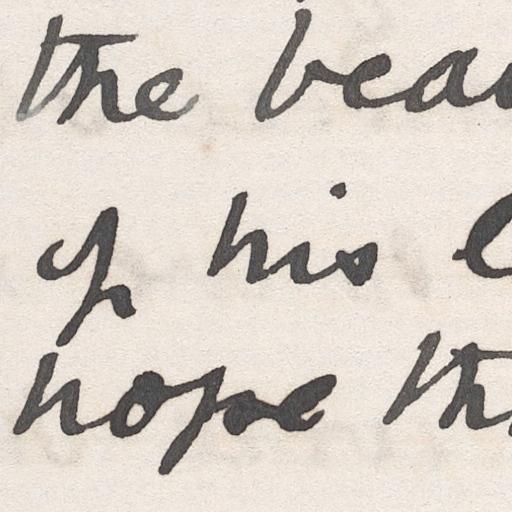 the bea
of his
hope th